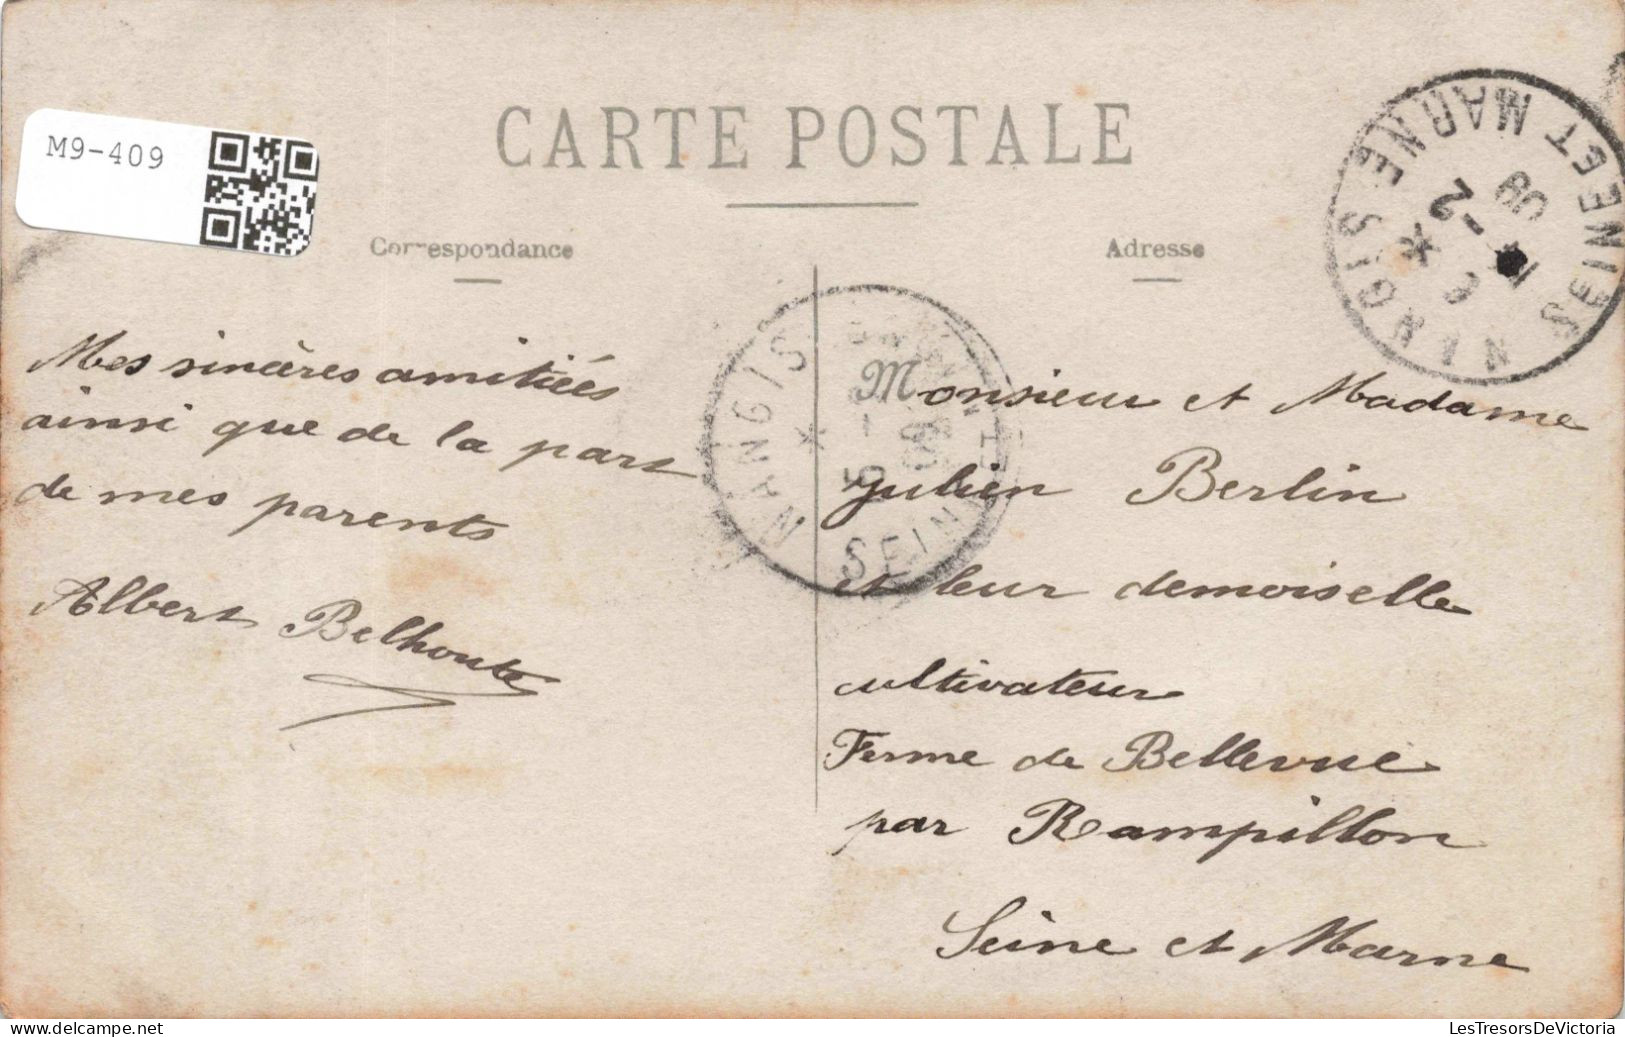 M9-409
CARTE POSTALE
Correspondance
Adresse
NANGIS SEINE ET MARNE
NANGIS SEINE ET
Mes sincères amitiées
ainsi que de la part
de mes parents
Albert Belhoute
Monsieur et Madame
Julien Berlin
et leur demoiselle
cultivateur
Ferme de Bellevue
par Rampillon
Seine et Marne
M9-409.jpg - Carte postale
LesTresorsDeVictoria